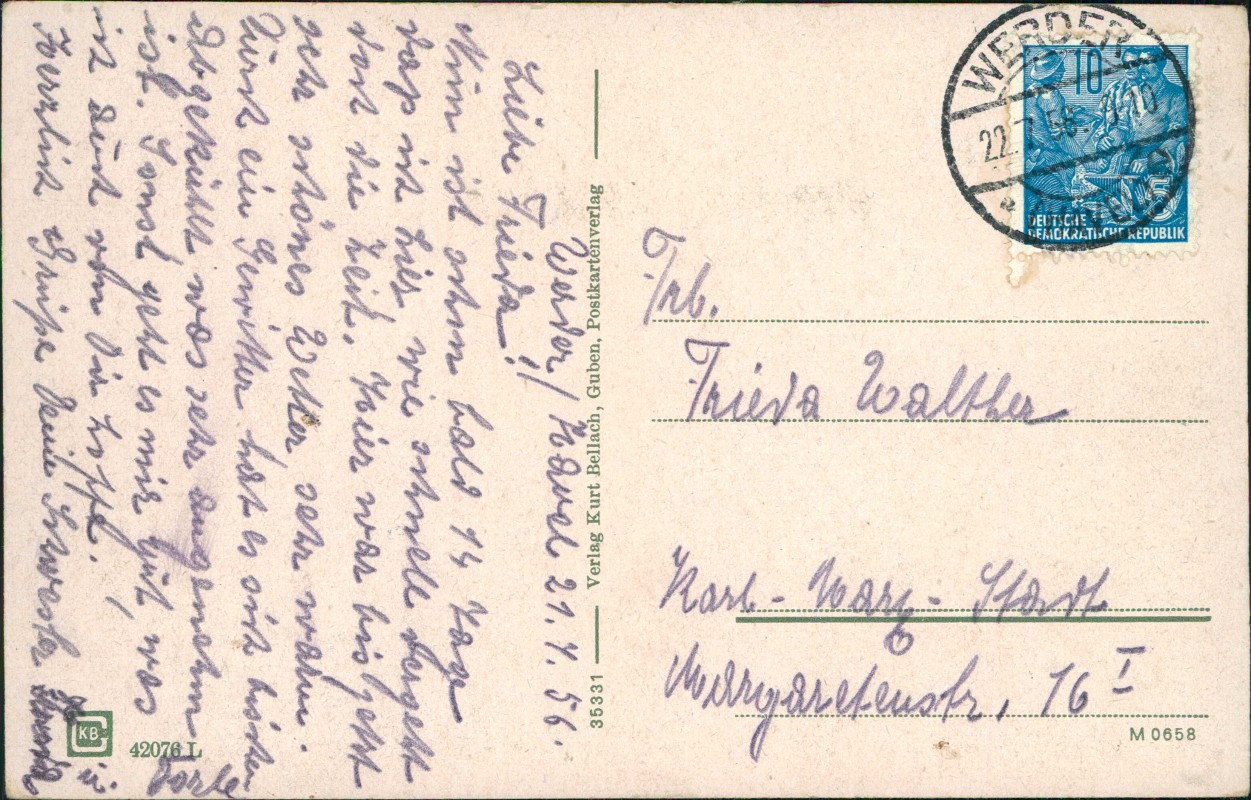 Werder/Havel 21.7.56.
Liebe Frieda!
Nun ist schon bald 14 Tage
das ich hier, wie schnell vergeht
dort die Zeit. Hier war bis jetzt
sehr schönes Wetter sehr warm.
ein Gewitter hat es sich bisschen
abgekühlt was sehr angenehm
ist. Sonst geht es mir gut, was
ich auch von Dir hoffe.
Herzlich grüßt Deine Schwester
35331
Verlag Kurt Bellach, Guben, Postkartenverlag
KB
42076 L
WERDER
22.7.56. 9-10
(HAVEL)
10
5
DEUTSCHE
DEMOKRATISCHE REPUBLIK
Frl.
Frieda Walther
Karl-Marx-Stadt
Margaretenstr. 16 I
M 0658